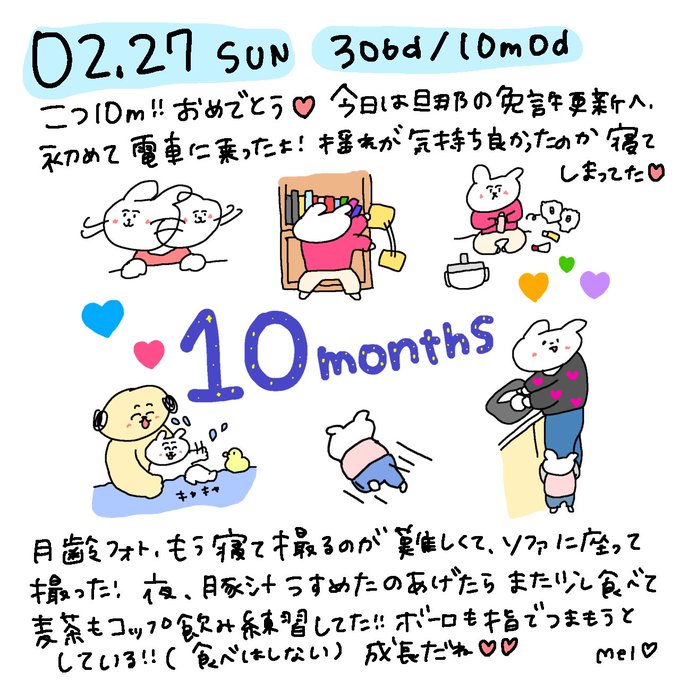 02.27 SUN 306d/10m0d
こつ10m!! おめでとう♡ 今日は旦那の免許更新へ、
初めて電車に乗ったよ! 揺れが気持ち良かったのか 寝て
しまってた♡
10months
キャキャ
月齢フォト、もう寝て撮るのが難しくて、ソファに座って
撮った! 夜、豚汁うすめたのあげたら また少し食べて
麦茶もコップ飲み練習してた!! ボーロも指でつまもうと
している!!(食べはしない) 成長だね♡♡
mel♡